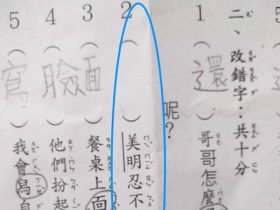 二、改錯字：共十分
1（還）哥哥怎麼
呢？
2（　）美明忍不
3（面）餐桌上
4（臉）他們扮起
5（寫）我會